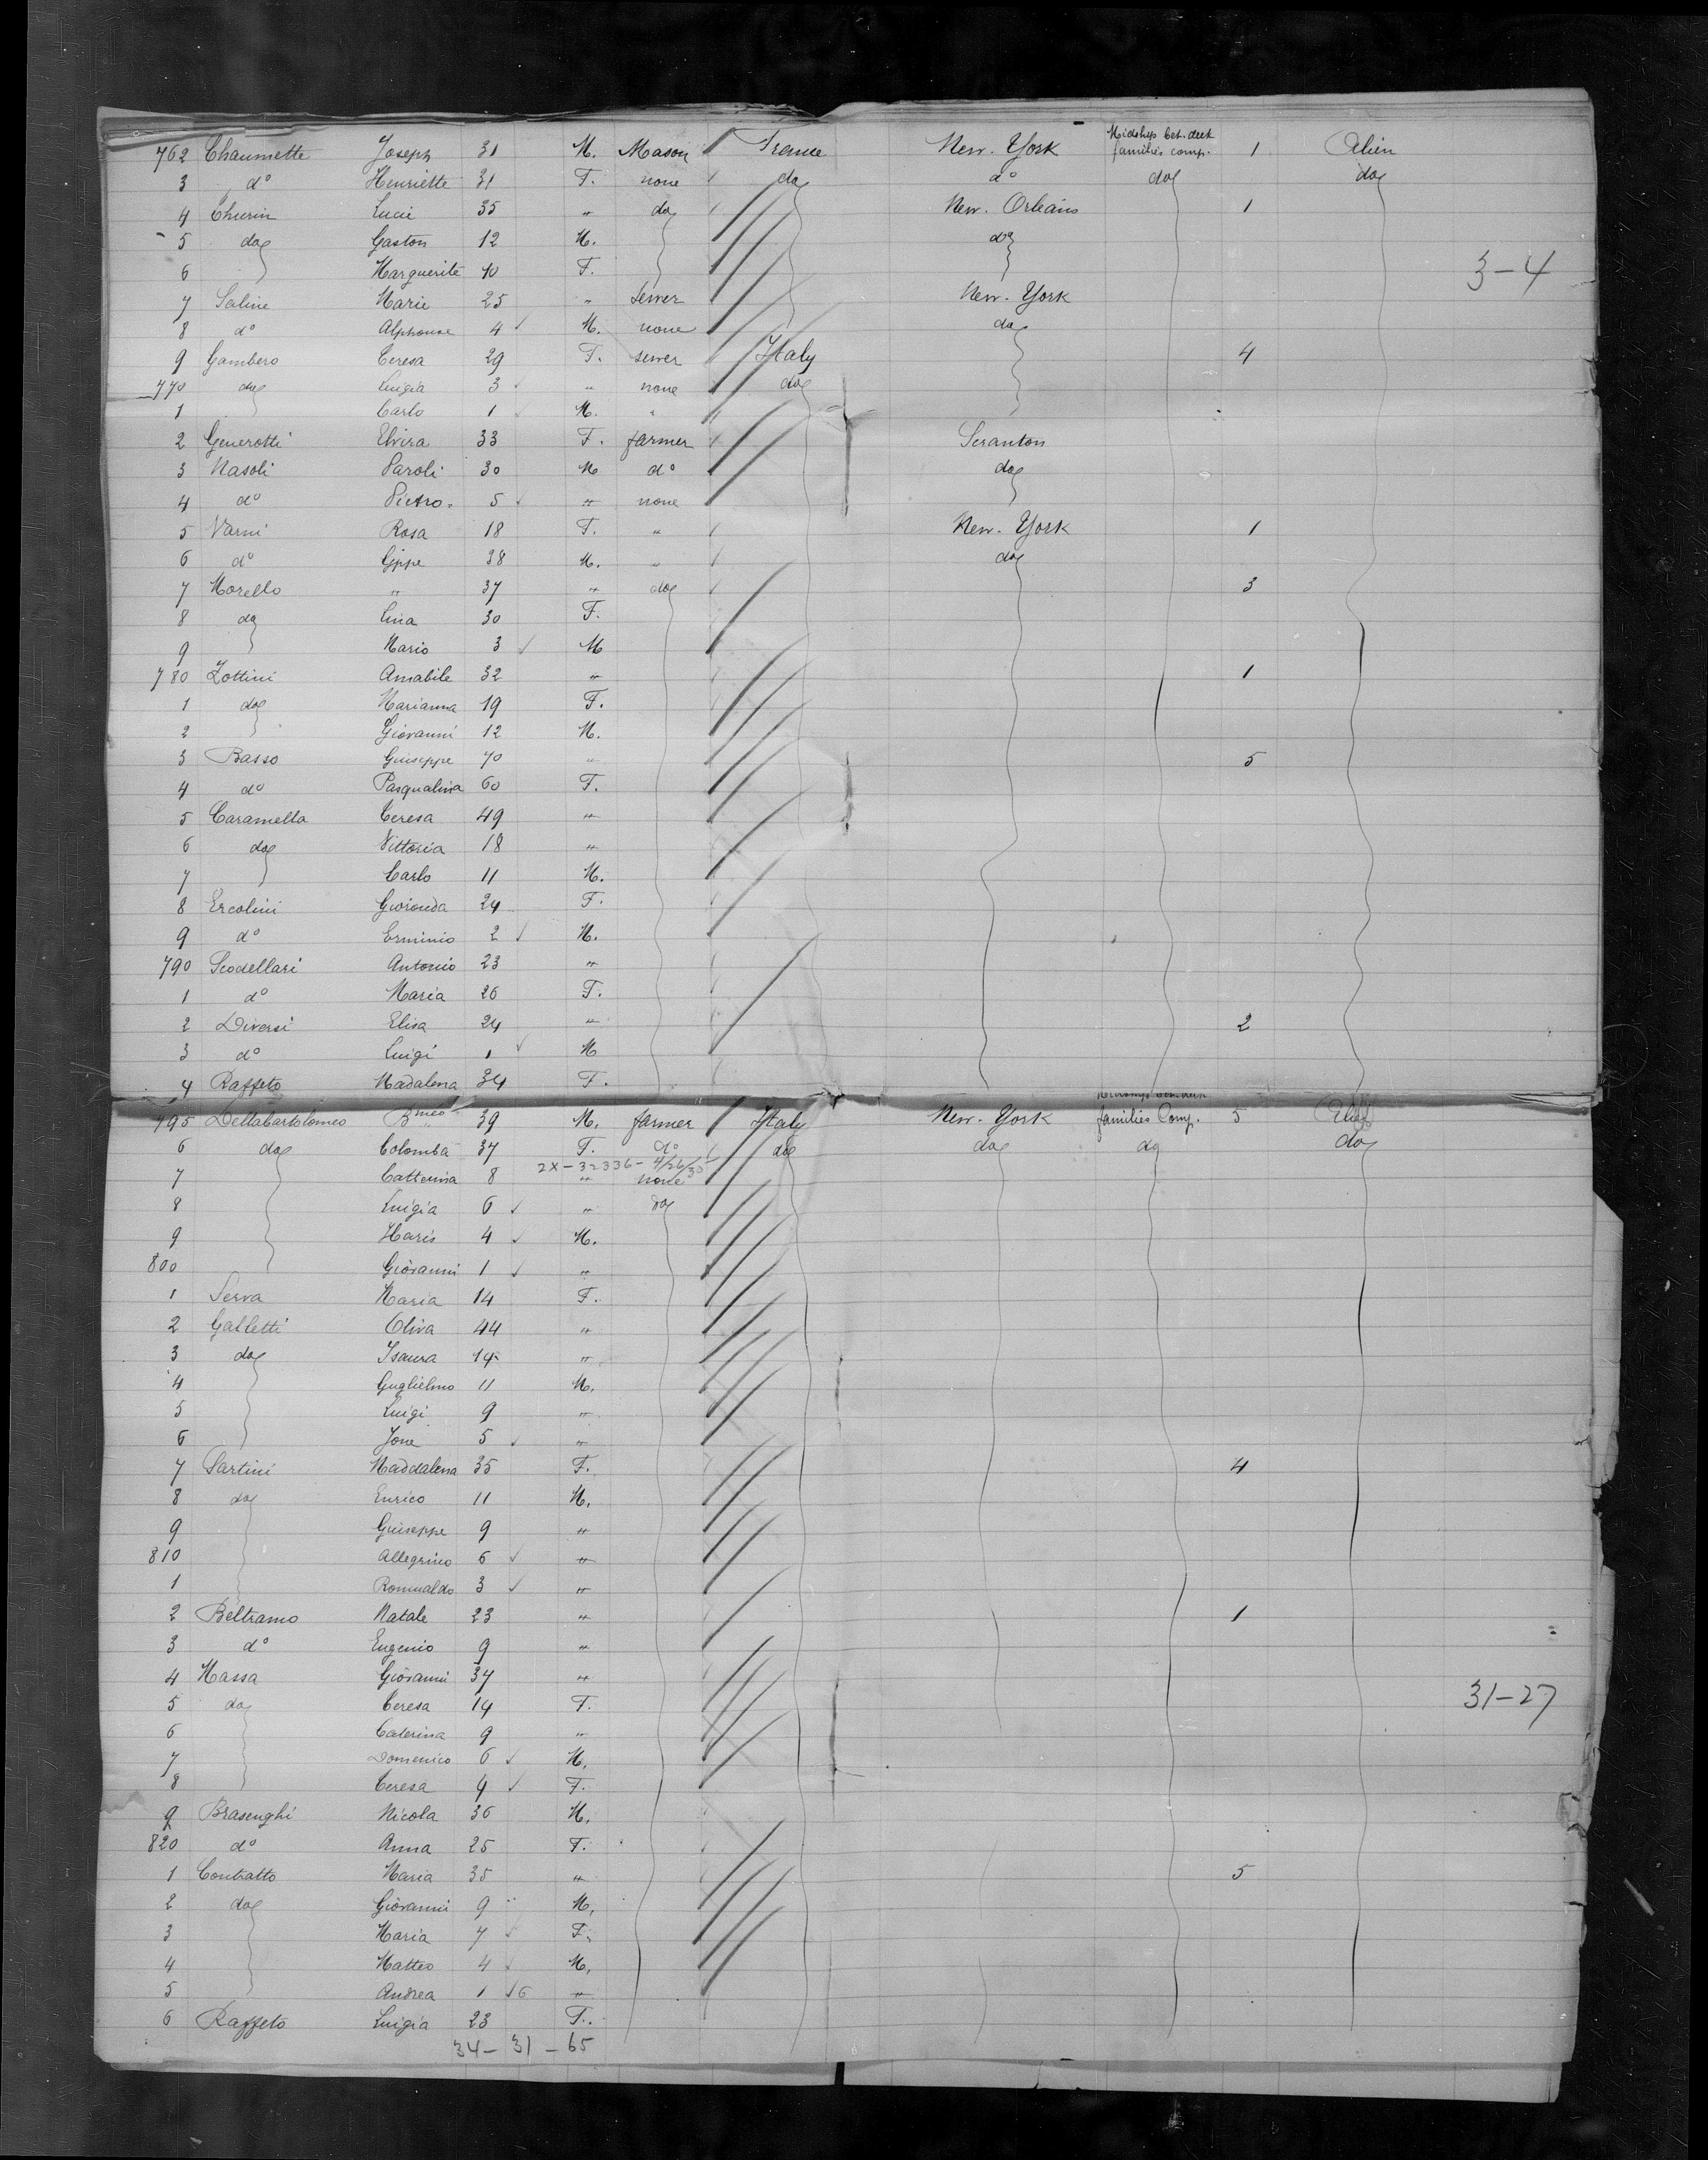 762 Chaumette Joseph 31 M. Mason France New-York Midship bet. deck families comp. 1 Alien
3 do Henriette 31 F. none do do do do
4 Churin Lucie 35 " do New-Orleans 1
5 do Gaston 12 M. do
6 Marguerite 10 F.
3-4
7 Saline Marie 25 " sewer New-York
8 do Alphonse 4 M. none do
9 Gambero Teresa 29 F. sewer Italy 4
770 do Luigia 3 " none do
1 Carlo 1 M. "
2 Generotti Elvira 33 F. farmer Scranton
3 Masoli Paroli 30 M do do
4 do Pietro 5 " none
5 Varni Rosa 18 F. " New-York 1
6 do Gppe 38 M. " do
7 Morello " 37 " do 3
8 do Lina 30 F.
9 Mario 3 M
780 Zottini Amabile 32 " 1
1 do Marianna 19 F.
2 Giovanni 12 M.
3 Basso Giuseppe 70 " 5
4 do Pasqualina 60 F.
5 Caramella Teresa 49 "
6 do Vittoria 18 "
7 Carlo 11 M.
8 Ercolini Gioconda 24 F.
9 do Erminio 2 M.
790 Scodellari Antonio 23 "
1 do Maria 26 F.
2 Diversi Elisa 24 " 2
3 do Luigi 1 M
4 Raffeto Madalena 34 F.
795 Dellabartolomeo Bmeo 39 M. farmer Italy New-York families Comp. 5 Alien
6 do Colomba 37 F. do do do do do
2X-32336-4/26/30
7 Catterina 8 " none
8 Luigia 6 " do
9 Mario 4 M.
800 Giovanni 1 "
1 Serva Maria 14 F.
2 Galletti Oliva 44 "
3 do Isaura 14 "
4 Guglielmo 11 M.
5 Luigi 9 "
6 Jone 5 "
7 Sartini Maddalena 35 F. 4
8 do Enrico 11 M.
9 Giuseppe 9 "
810 Allegrino 6 "
1 Romualdo 3 "
2 Beltramo Natale 23 " 1
3 do Eugenio 9 "
4 Massa Giovanni 37 "
5 do Teresa 14 F.
31-27
6 Caterina 9 "
7 Domenico 6 M.
8 Teresa 4 F.
9 Brasenghi Nicola 36 M.
820 do Anna 25 F.
1 Contratto Maria 35 " 5
2 do Giovanni 9 M.
3 Maria 7 F.
4 Matteo 4 M.
5 Andrea 1 6 "
6 Raffeto Luigia 23 F.
34-31-65